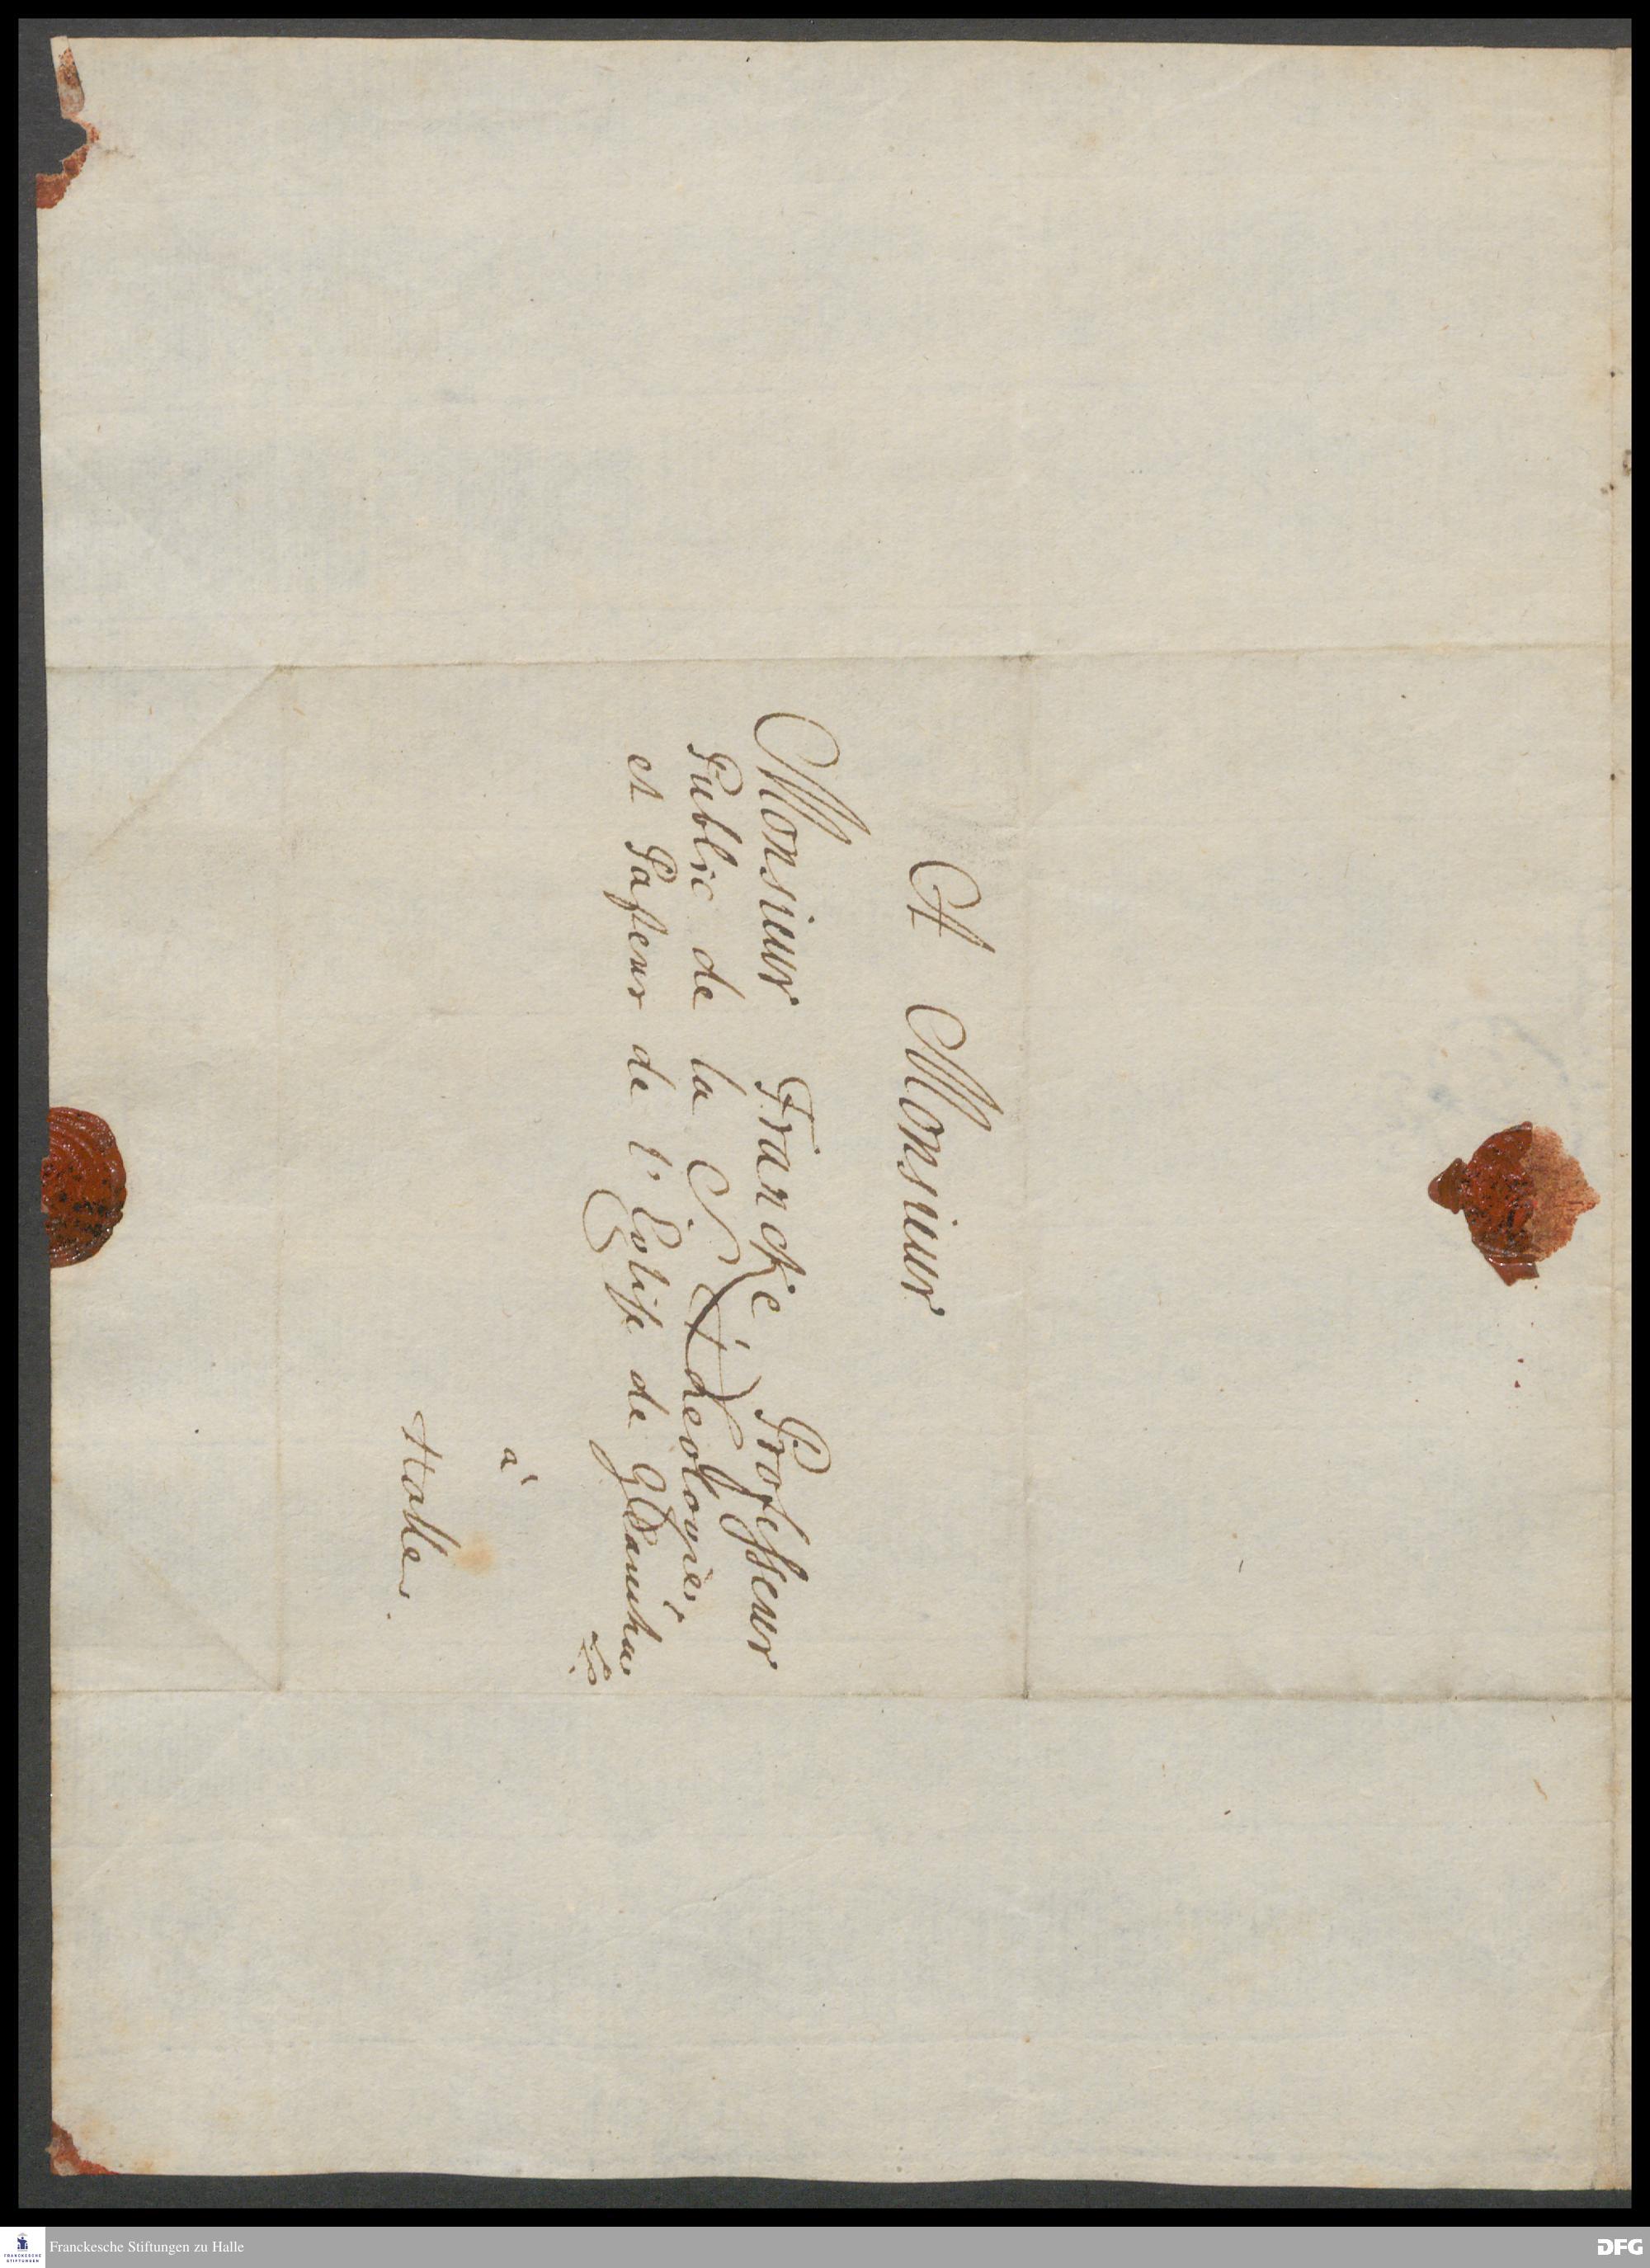 A Monsieur
Monsieur Francke Professeur
Public de la S. Theologie,
et Pasteur de l'Eglise de Glaucha
à
Halle.
Franckesche Stiftungen zu Halle
DFG
FRANCKESCHE
STIFTUNGEN